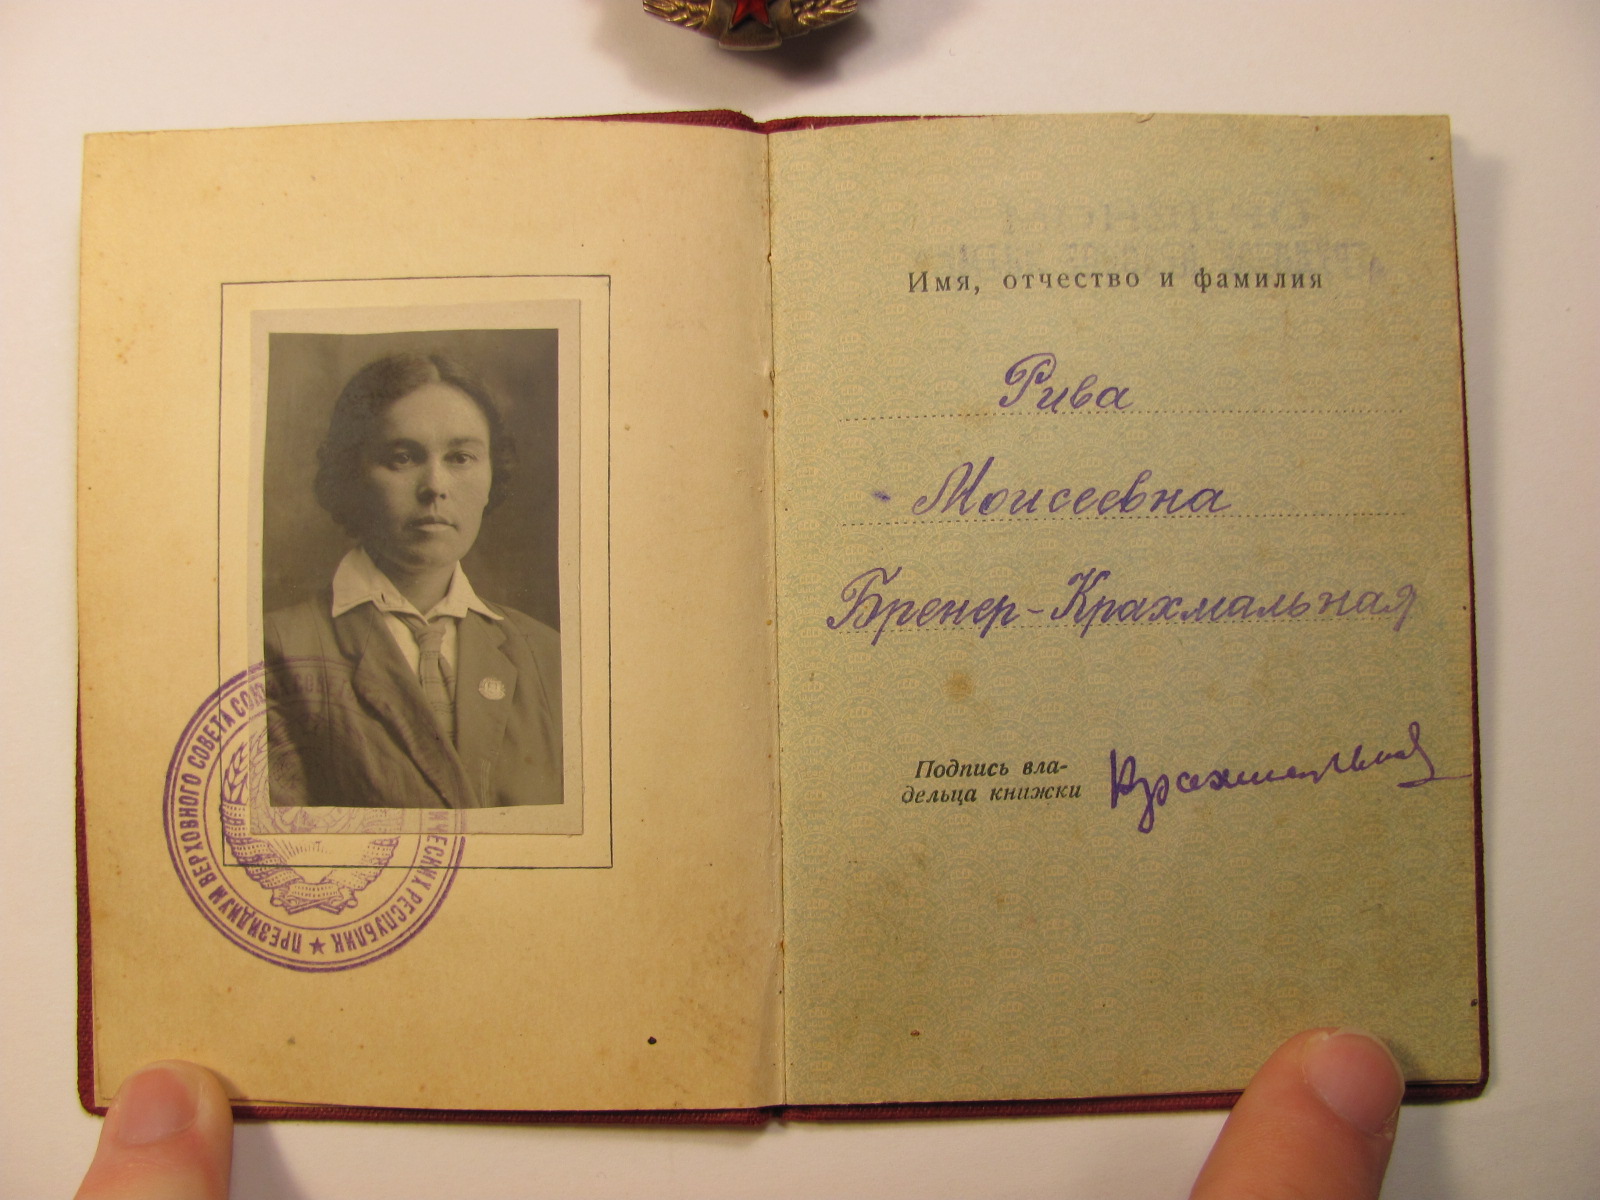 ПРЕЗИДИУМ ВЕРХОВНОГО СОВЕТА СОЮЗА СОВЕТ ИЧЕСКИХ РЕСПУБЛИК
Имя, отчество и фамилия
Рива
Моисеевна
Бренер-Крахмальная
Подпись вла-
дельца книжки
Крахмальная